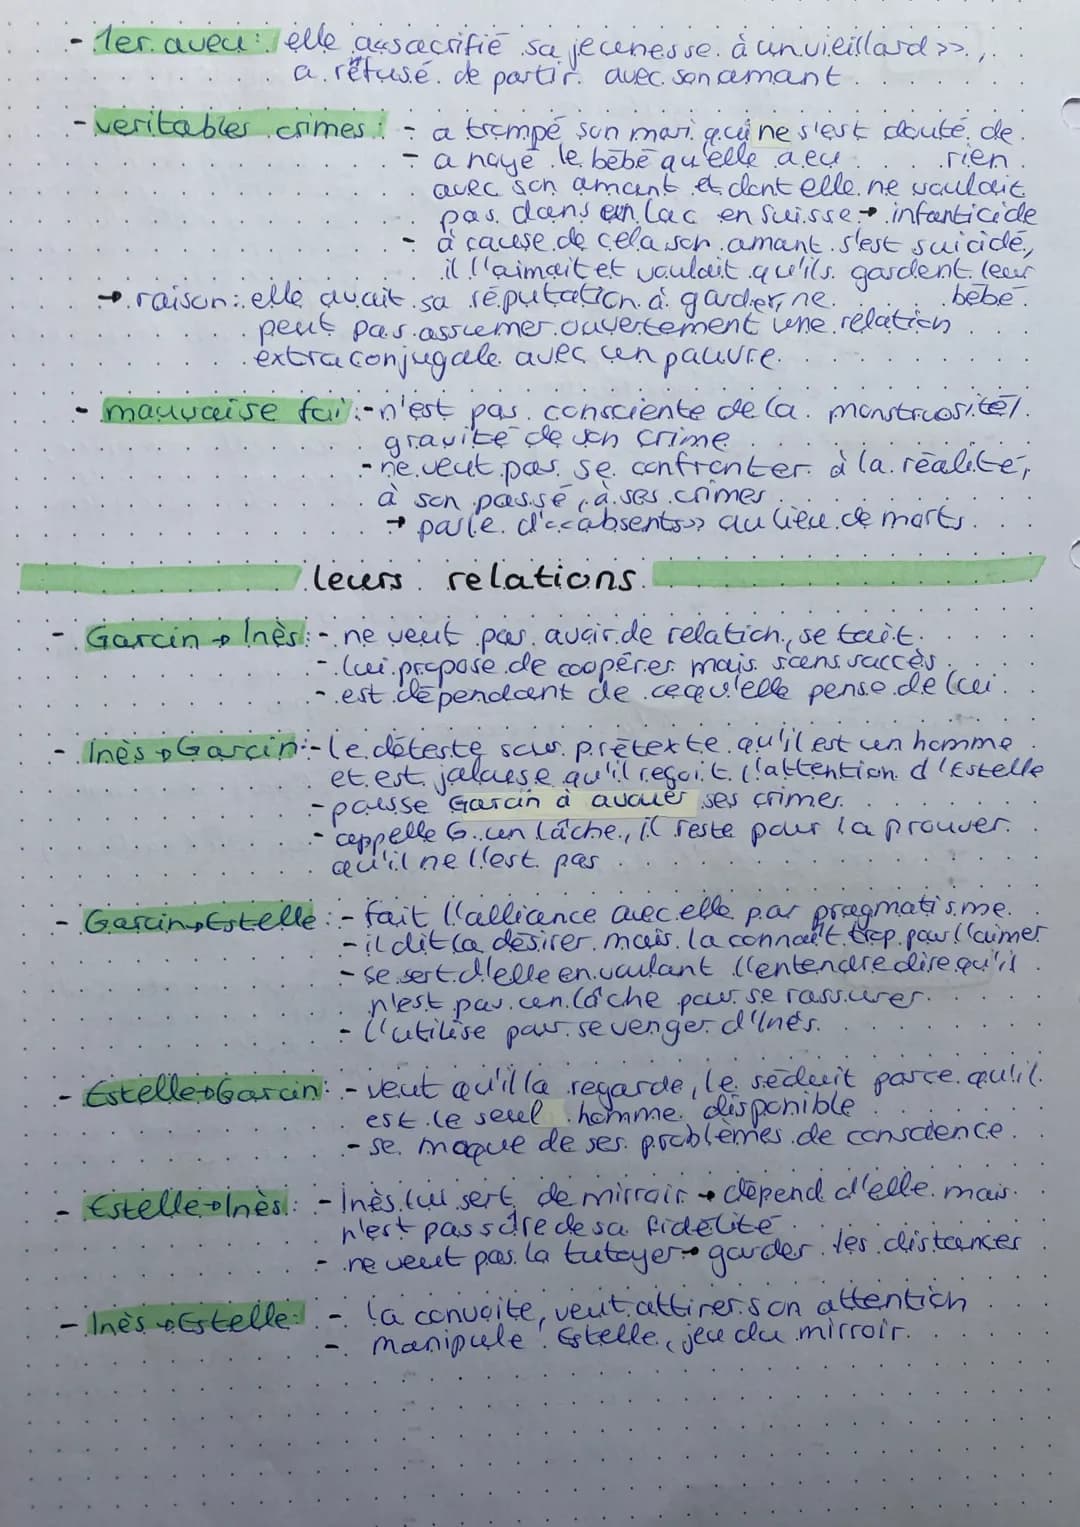 - 1er aveu: elle « sacrifié sa jeunesse à un vieillard »,
a refusé de partir avec son amant
- veritables crimes: - a trompé son mari qui ne s'est douté de
rien
- a noyé le bébé qu'elle a eu
avec son amant et dont elle ne voulait
pas dans un lac en Suisse → infanticide
- à cause de cela son amant s'est suicidé,
il l'aimait et voulait qu'ils gardent leur
bébé.
→ raison: elle avait sa réputation à garder, ne
peut pas assumer ouvertement une relation
extraconjugale avec un pauvre.
- mauvaise foi: - n'est pas consciente de la monstruosité/
gravité de son crime
- ne veut pas se confronter à la réalité,
à son passé, à ses crimes
→ parle d'«absents» au lieu de morts.
leurs relations
- Garcin → Inès: - ne veut pas avoir de relation, se tait.
- lui propose de coopérer mais sans succès
- est dépendant de ce qu'elle pense de lui
- Inès → Garcin: - le déteste sous prétexte qu'il est un homme
et est jalouse qu'il reçoit l'attention d'Estelle
- pousse Garcin à avouer ses crimes.
- appelle G. un lâche, il reste pour la prouver
qu'il ne l'est pas
- Garcin → Estelle: - fait l'alliance avec elle par pragmatisme.
- il dit la désirer mais la connaît trop pour l'aimer
- se sert d'elle en voulant l'entendre dire qu'il
n'est pas un lâche pour se rassurer.
- l'utilise pour se venger d'Inès.
- Estelle → Garcin: - veut qu'il la regarde, le séduit parce qu'il
est le seul homme disponible
- se moque de ses problèmes de conscience.
- Estelle → Inès: - Inès lui sert de mirroir → dépend d'elle mais
n'est pas sûre de sa fidélité
- ne veut pas la tutoyer → garder les distances
- Inès → Estelle: - la convoite, veut attirer son attention
- manipule Estelle, jeu du mirroir.